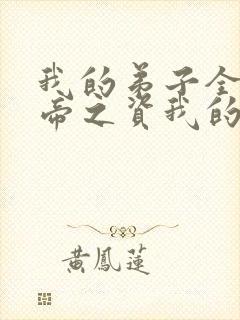 我的弟子全
帝之資我的
黃鳳蓮